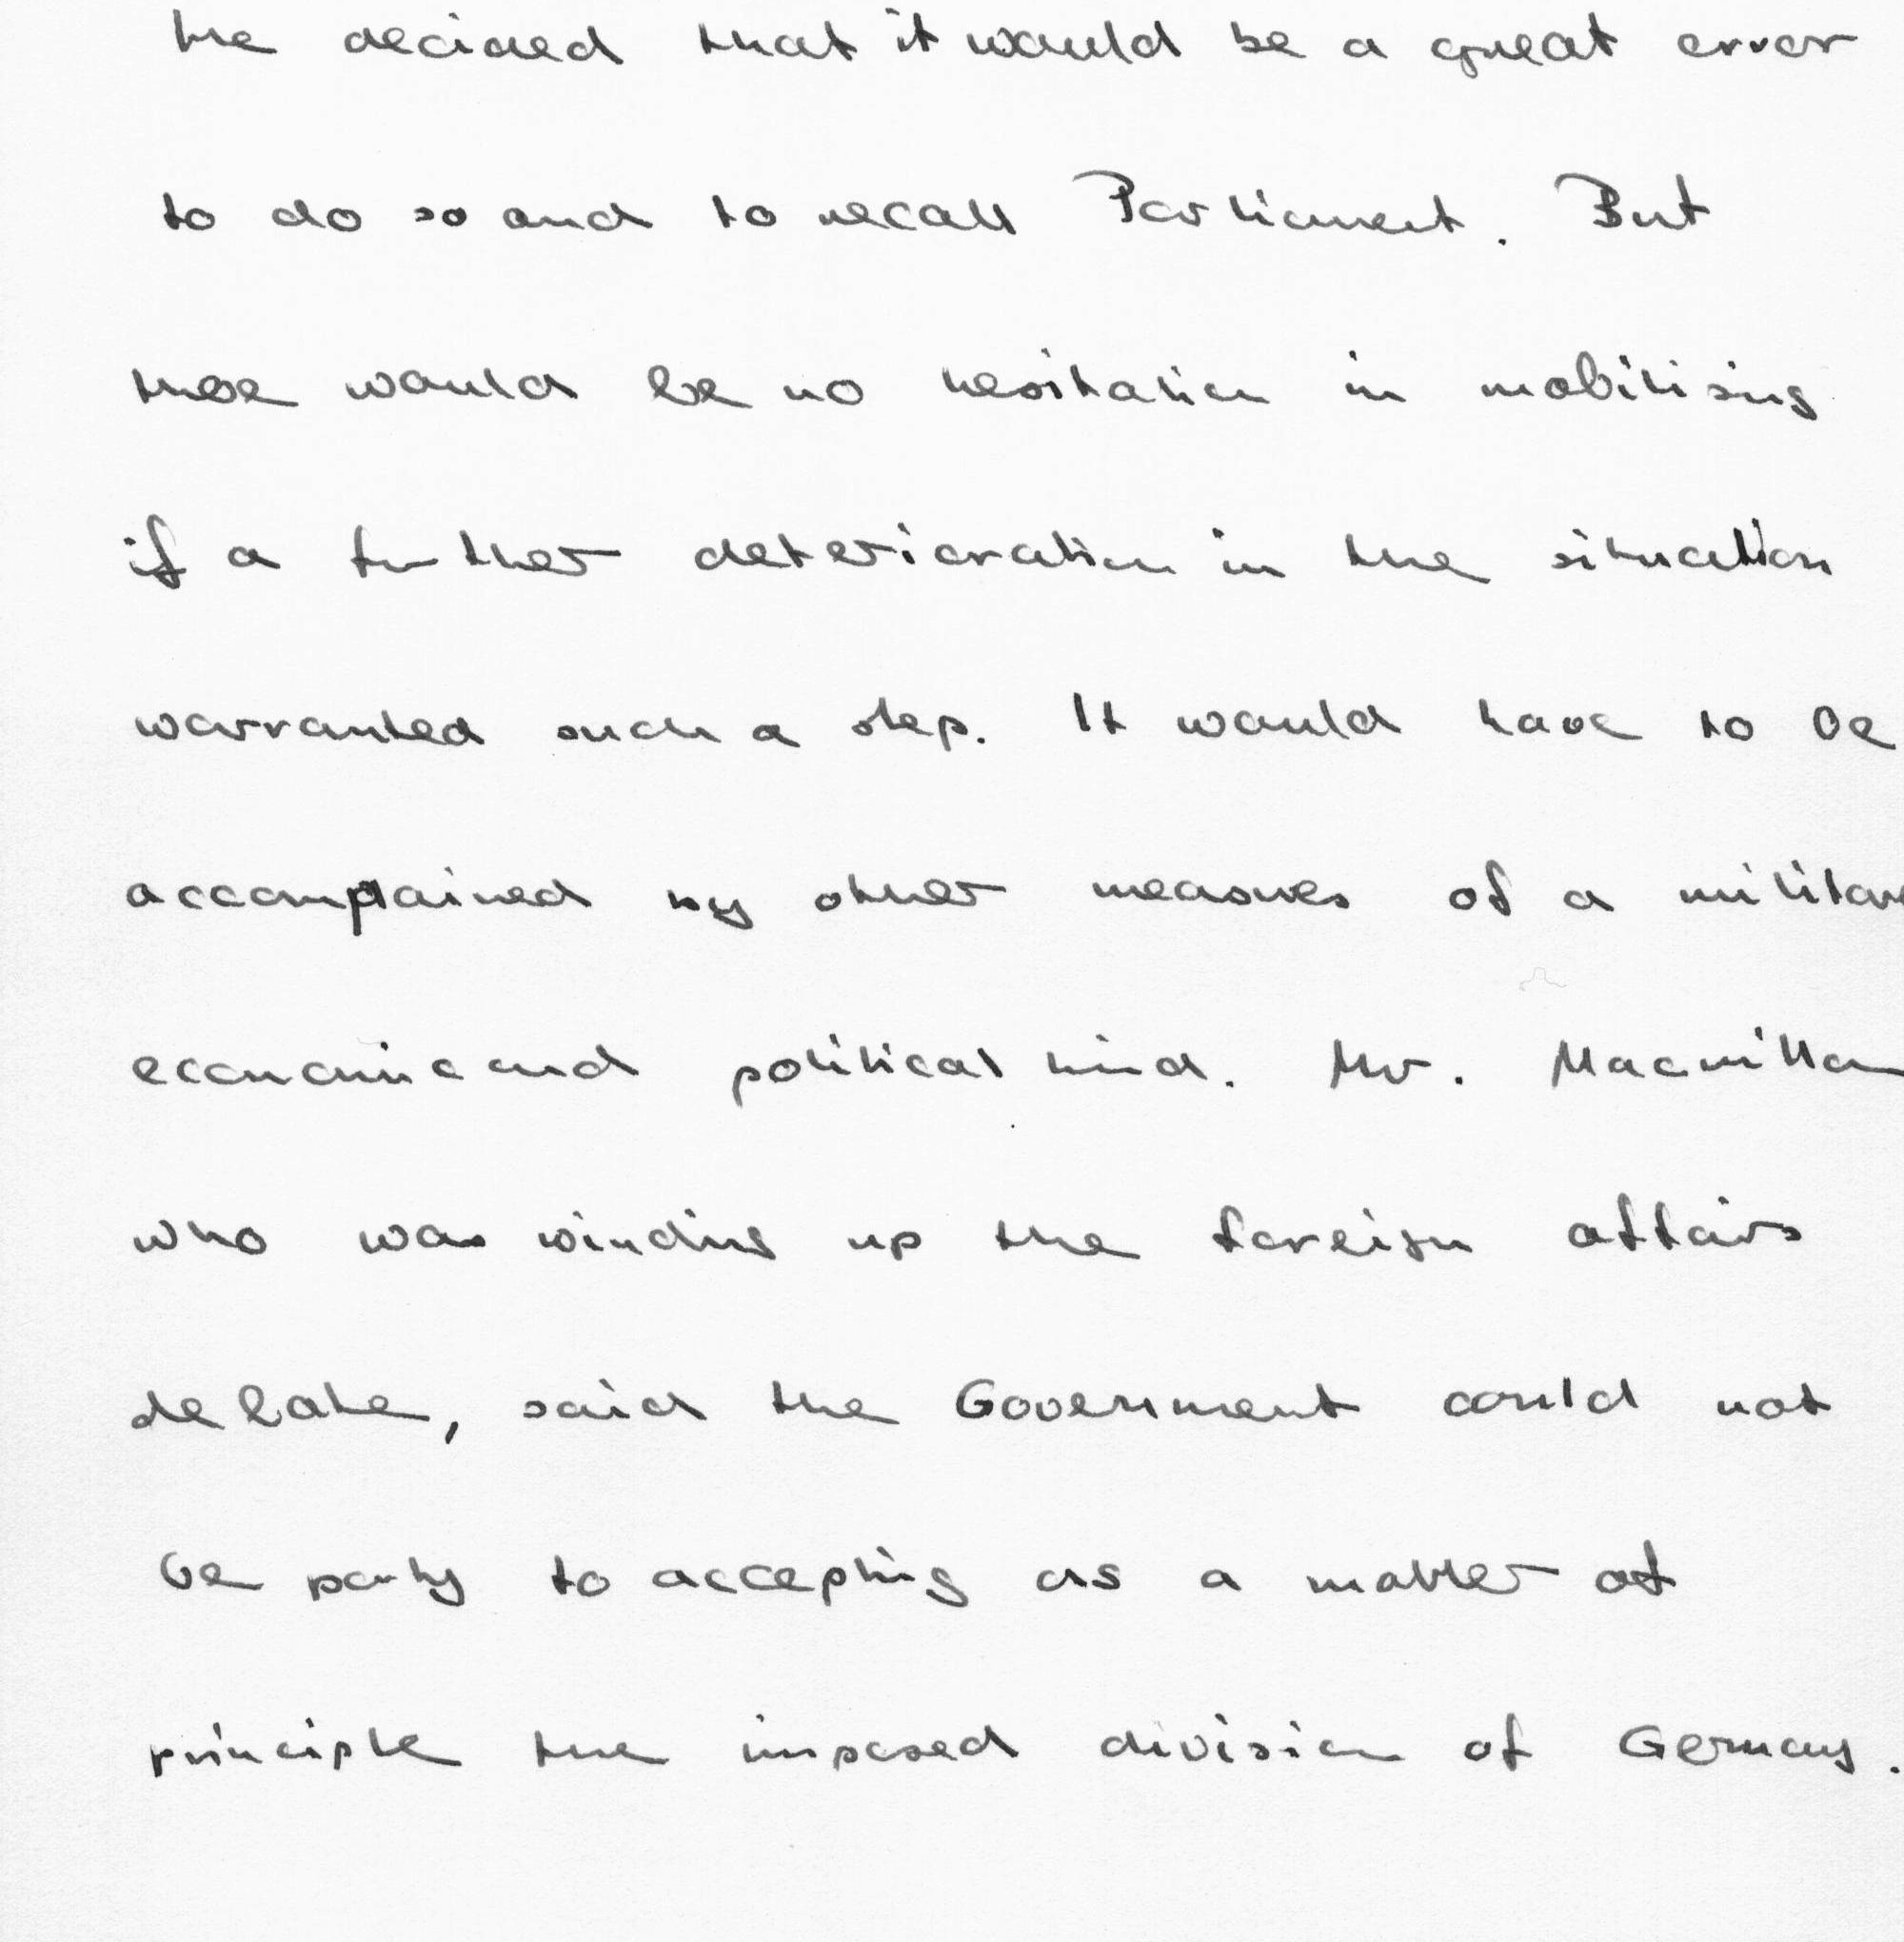 he decided that it would be a great error
to do so and to recall Parliament. But
there would be no hesitation in mobilising
if a further deterioration in the situation
warranted such a step. It would have to be
accompained by other measures of a military
economic and political kind. Mr. Macmillan
who was winding up the foreign affairs
debate, said the Government could not
be party to accepting as a matter of
principle the imposed division of Germany.